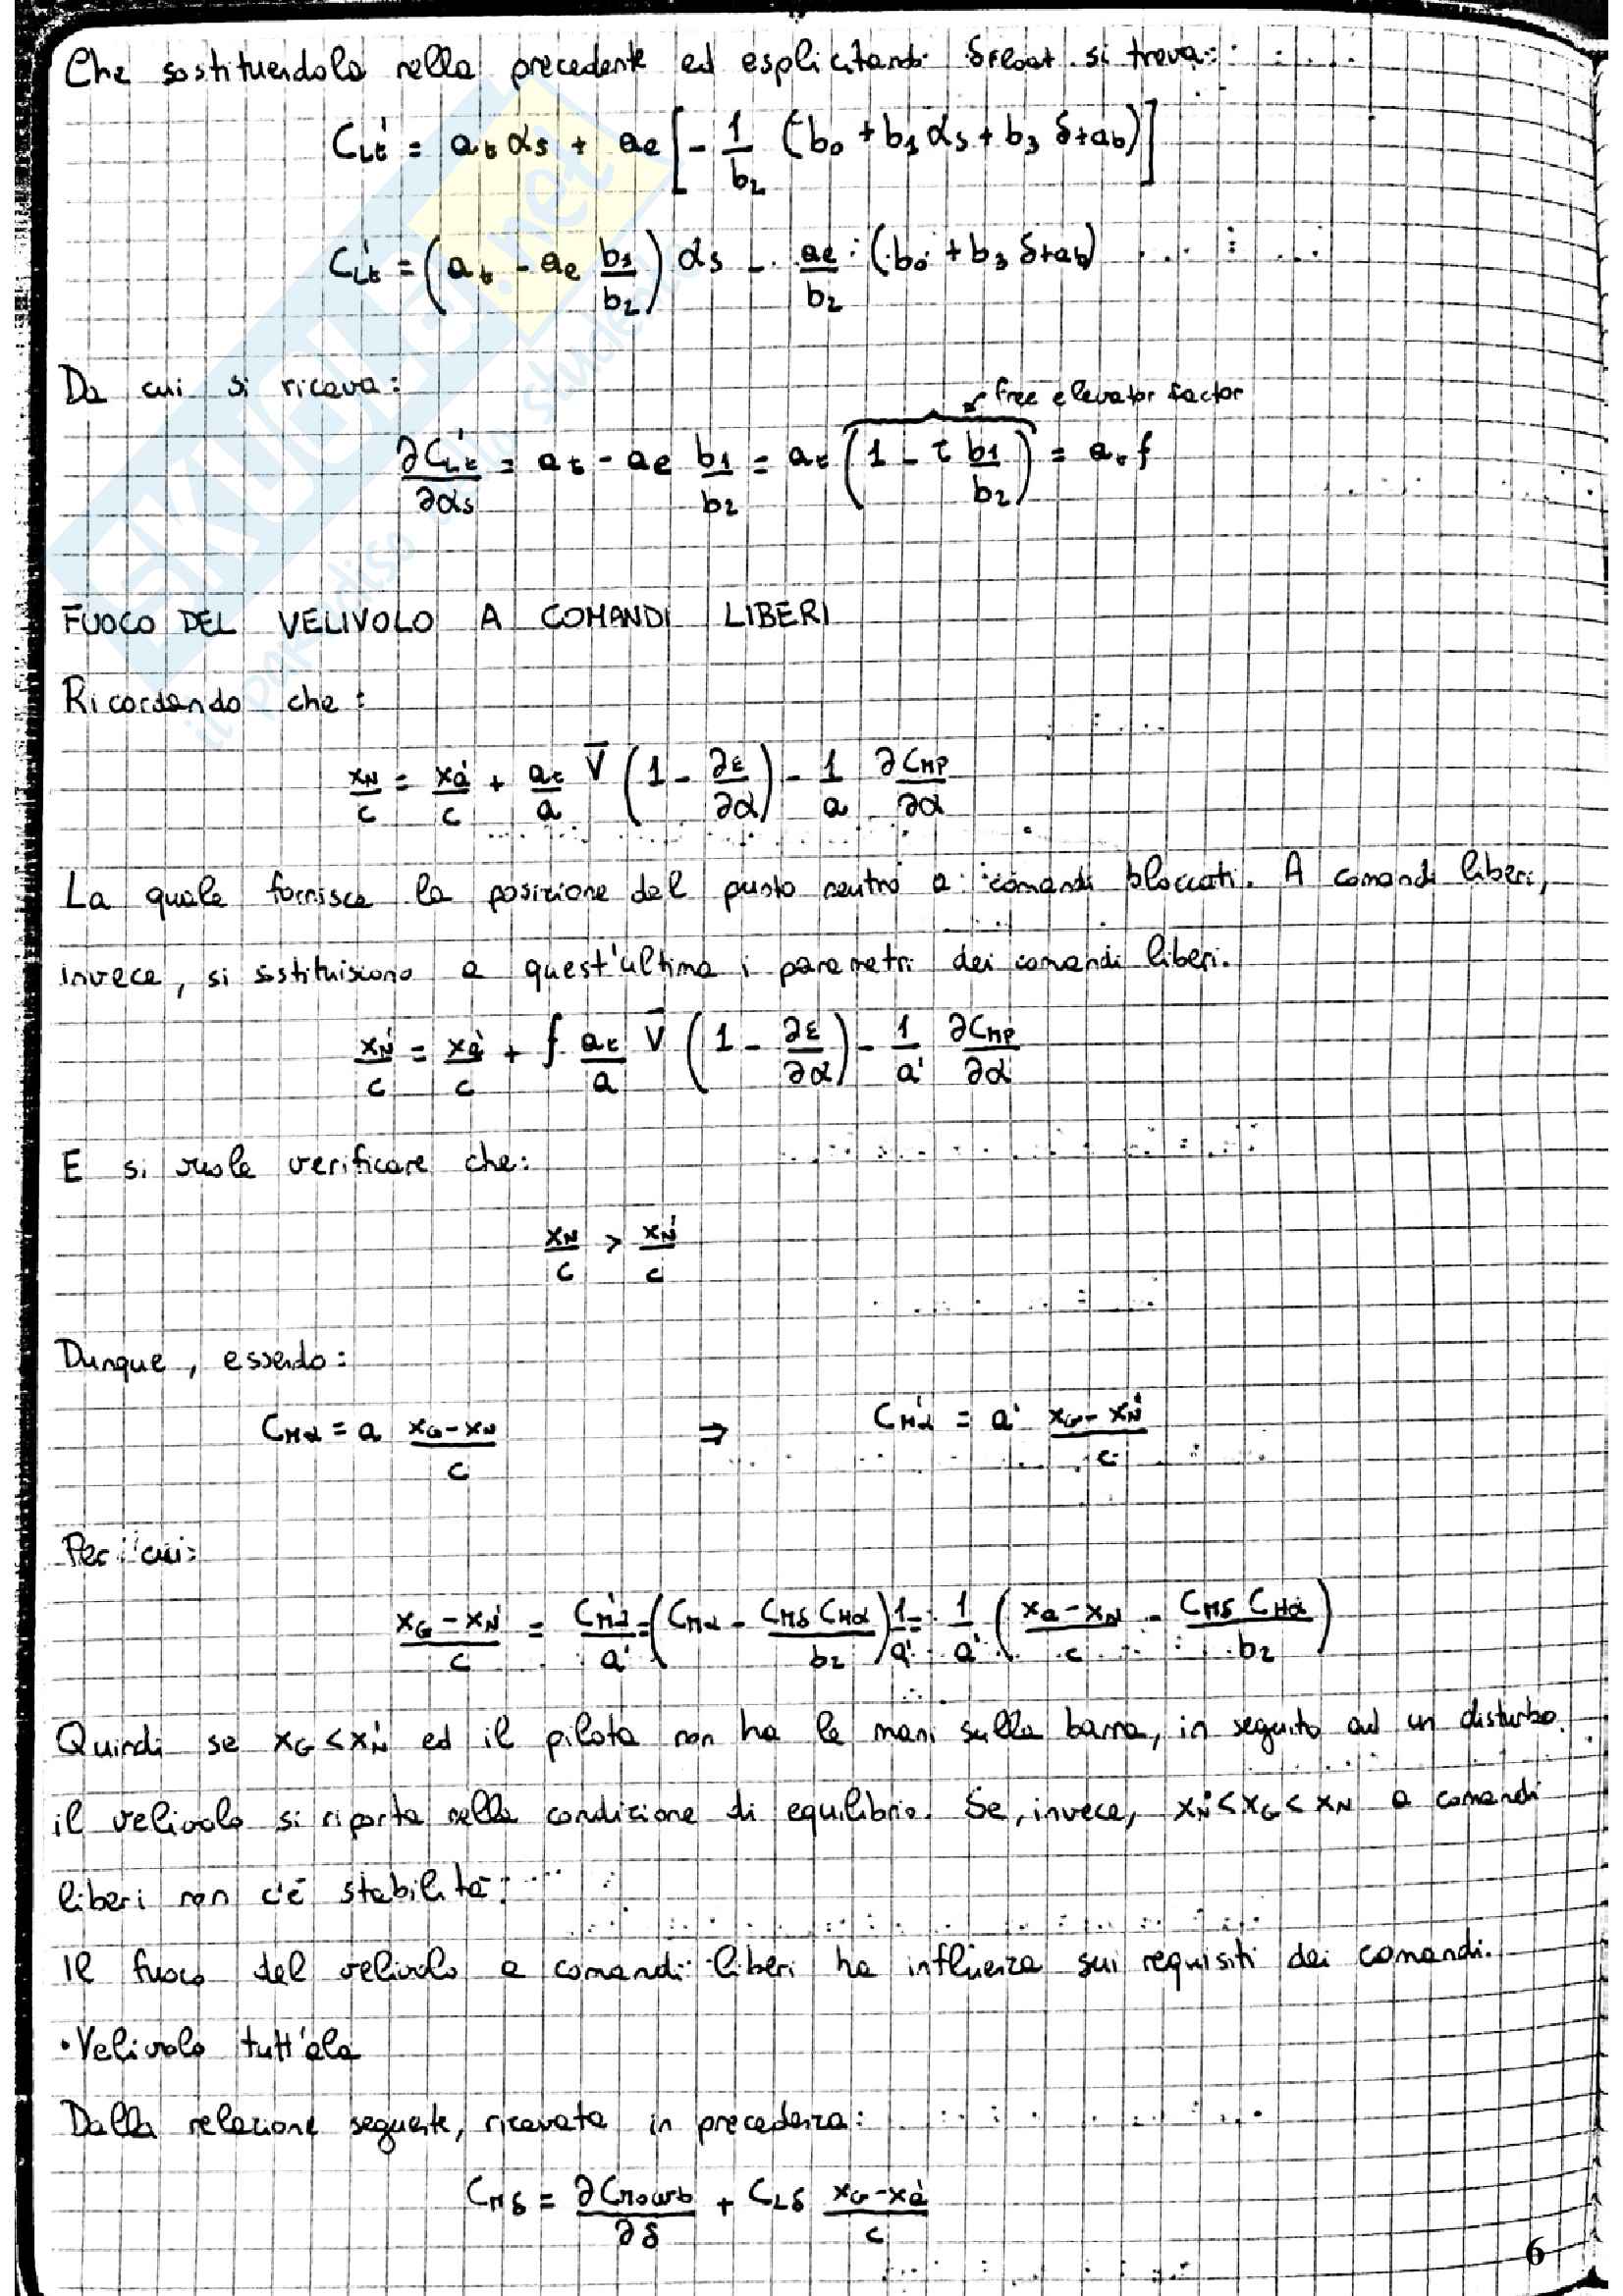 Che sostituendola nella precedente ed esplicitando δfloat si trova:
C'Lt = at αs + ae [ - 1/b2 (b0 + b1 αs + b3 δtab) ]
C'Lt = ( at - ae b1/b2 ) αs - ae/b2 (b0 + b3 δtab)
Da cui si ricava:
free elevator factor
∂C'Lt/∂αs = at - ae b1/b2 = at ( 1 - τ b1/b2 ) = at f
FUOCO DEL VELIVOLO A COMANDI LIBERI
Ricordando che:
xN/c = xa'/c + at/a V̅ ( 1 - ∂ε/∂α ) - 1/a ∂CMP/∂α
La quale fornisce la posizione del punto neutro a comandi bloccati. A comandi liberi,
invece, si sostituiscono a quest'ultima i parametri dei comandi liberi.
xN'/c = xa'/c + f at/a V̅ ( 1 - ∂ε/∂α ) - 1/a' ∂CMP/∂α
E si vuole verificare che:
xN/c > xN'/c
Dunque, essendo:
CMα = a (xG - xN)/c ⇒ C'Mα = a' (xG - xN')/c
Per cui:
(xG - xN')/c = C'Mα/a' = ( CMα - CMδ CHα/b2 ) 1/a' = 1/a' ( (xG - xN)/c - CMδ CHα/b2 )
Quindi se xG < xN' ed il pilota non ha le mani sulla barra, in seguito ad un disturbo
il velivolo si riporta nella condizione di equilibrio. Se, invece, xN' < xG < xN a comandi
liberi non c'è stabilità.
Il fuoco del velivolo a comandi liberi ha influenza sui requisiti dei comandi.
• Velivolo tutt'ala
Dalla relazione seguente, ricavata in precedenza:
CMδ = ∂CM0wb/∂δ + CLδ (xG - xa')/c
6
SKUOLA.net